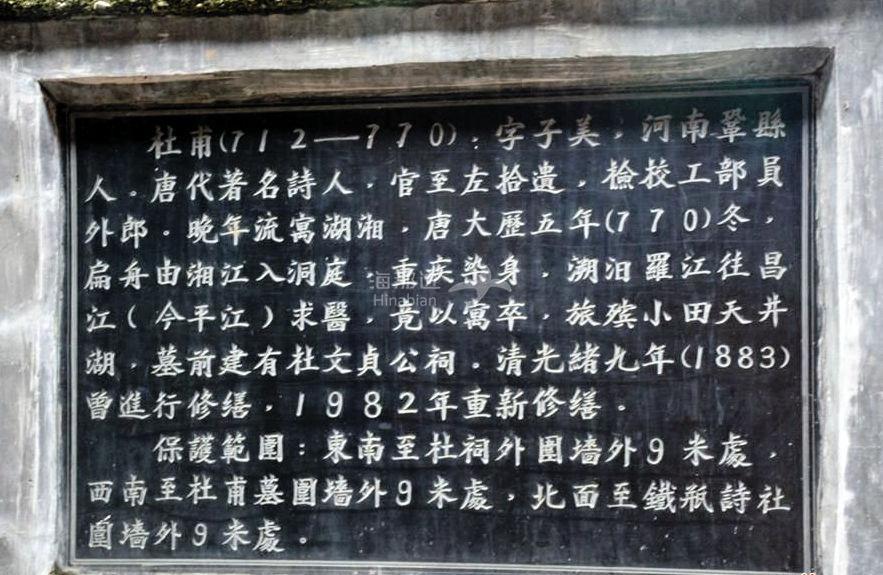 杜甫(712—770)：字子美，河南鞏縣
人。唐代著名詩人，官至左拾遺，檢校工部員
外郎。晚年流寓湖湘，唐大歷五年(770)冬，
扁舟由湘江入洞庭，重疾染身，溯汨羅江往昌
江(今平江)求醫，竟以寓卒，旅殯小田天井
湖，墓前建有杜文貞公祠。清光緒九年(1883)
曾進行修繕，1982年重新修繕。
保護範圍：東南至杜祠外圍墻外9米處，
西南至杜甫墓圍墻外9米處，北面至鐵瓶詩社
圍墻外9米處。
海那边
Hinabian